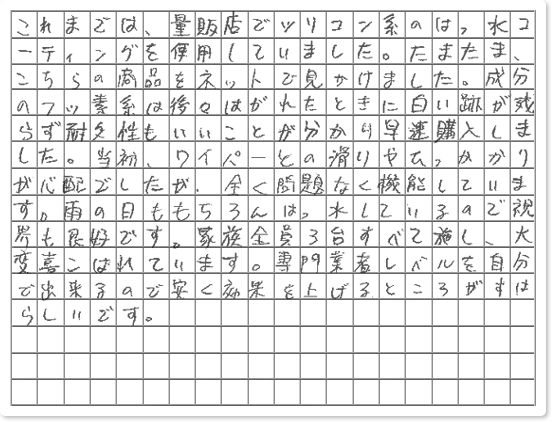 これまでは、量販店でシリコン系のはっ水コ
ーティングを使用していました。たまたま、
こちらの商品をネットで見かけました。成分
のフッ素系は後々はがれたときに白い跡が残
らず耐久性もいいことが分かり早速購入しま
した。当初、ワイパーとの滑りやひっかかり
が心配でしたが、全く問題なく機能していま
す。雨の日ももちろんはっ水しているので視
界も良好です。家族全員3台すべて施し、大
変喜こばれています。専門業者レベルを自分
で出来るので安く効果を上げるところがすば
らしいです。